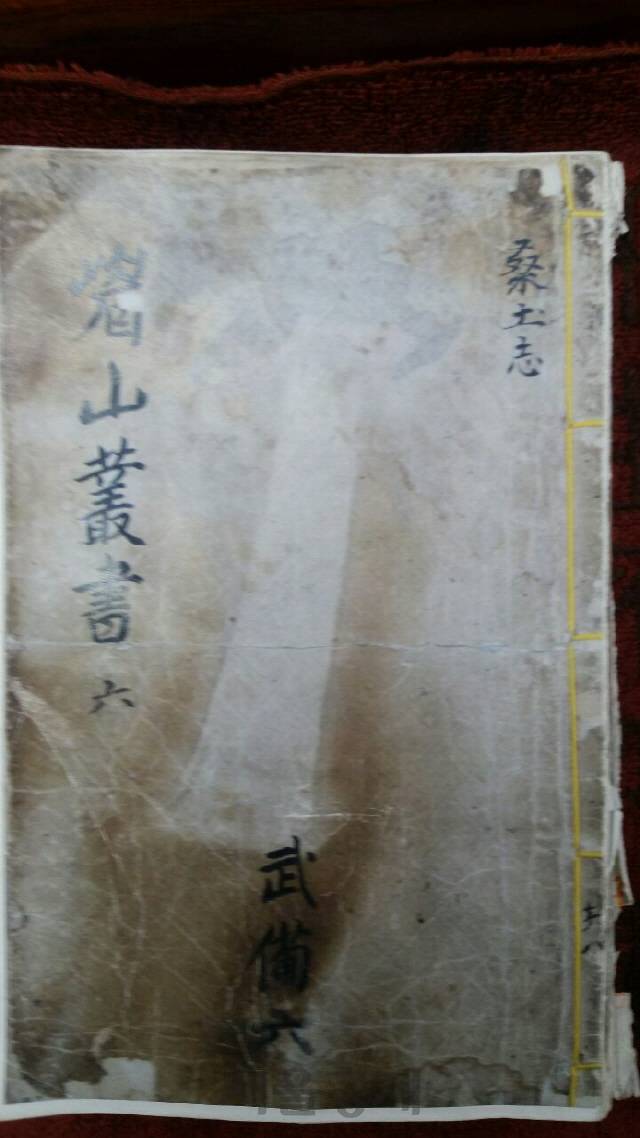 桑土志
武備六
山叢書 六
共八